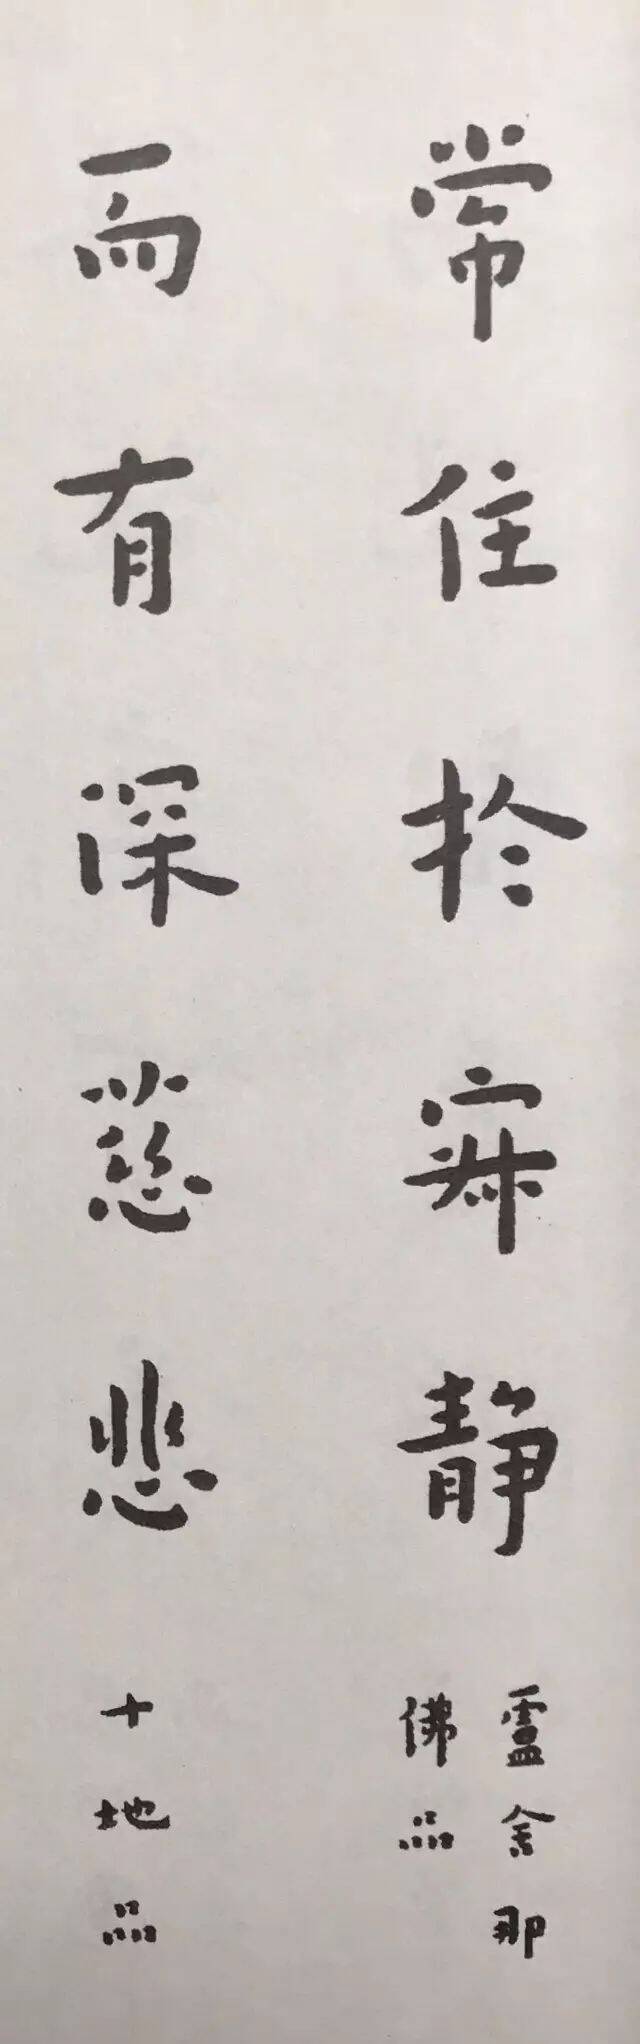 常住於寂靜
盧舍那
佛品
而有深慈悲
十地品